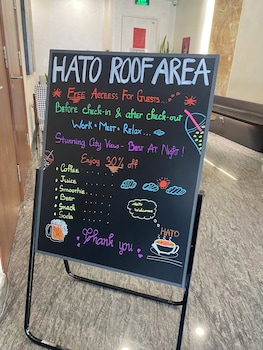 HATO ROOF AREA
FREE ACCESS FOR GUESTS...
Before check-in & after check-out
WORK • MEET • RELAX...
Stunning City View - BEST AT NIGHT!
Enjoy 30% off
• Coffee . . . . .
• Juice . . . . .
• Smoothie . . . . .
• Beer . . . . .
• Snack . . . . .
• Soda . . . . .
Hello
Welcome
HATO
Thank you